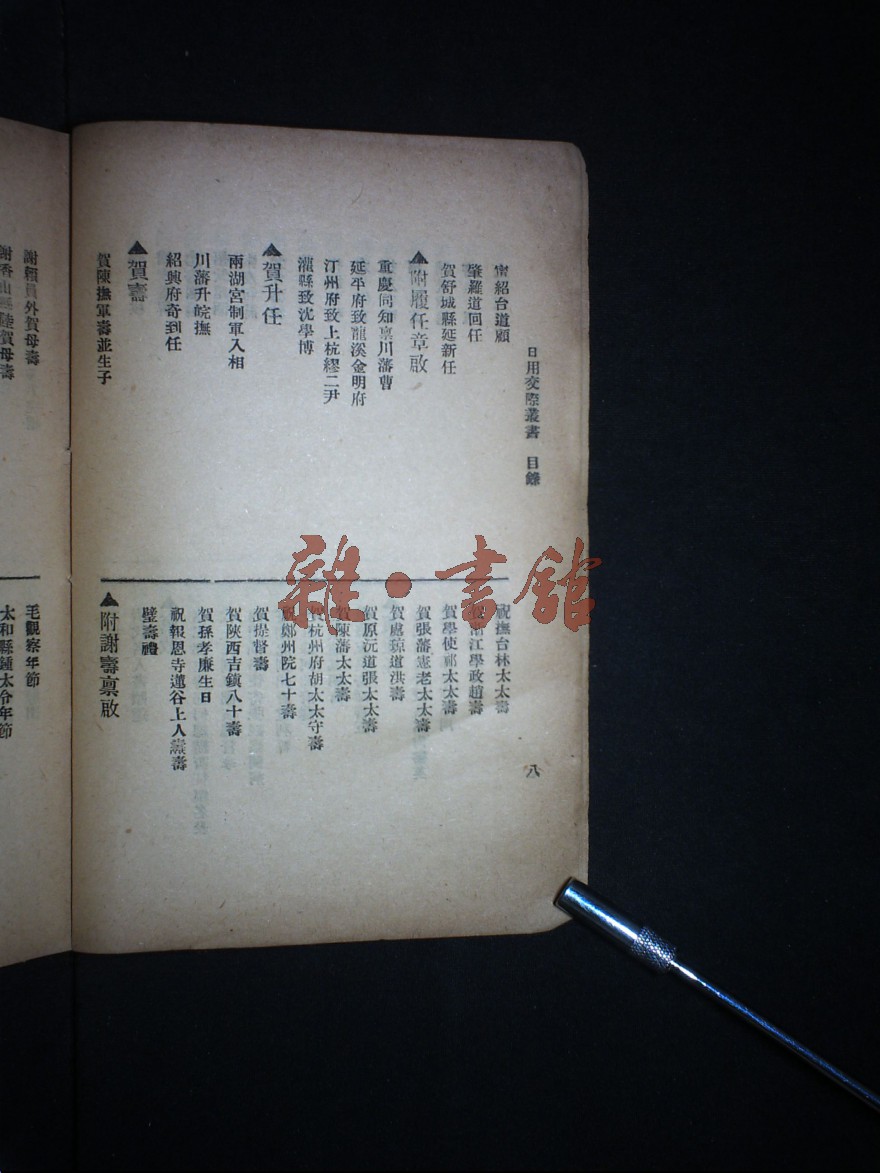 日用交際叢書 目錄
八
寗紹台道顧
肇羅道回任
賀舒城縣延新任
▲附履任章啟
重慶同知稟川藩曹
延平府致龍溪金明府
汀州府致上杭繆二尹
灌縣致沈學博
▲賀升任
兩湖宮制軍入相
川藩升皖撫
紹興府奇到任
▲賀壽
賀陳撫軍壽並生子
祝撫台林太太壽
浙江學政趙壽
賀學使祁太太壽
賀張藩憲老太太壽
賀處琼道洪壽
賀原沅道張太太壽
賀陳藩太太壽
賀杭州府胡太太守壽
祝鄭州院七十壽
賀提督壽
賀陝西吉鎮八十壽
賀孫孝廉生日
祝報恩寺蓮谷上人壽
璧壽禮
▲附謝壽稟啟
謝額員外賀母壽
謝香山陸賀母壽
毛觀察年節
太和縣鍾太令年節
雜·書館